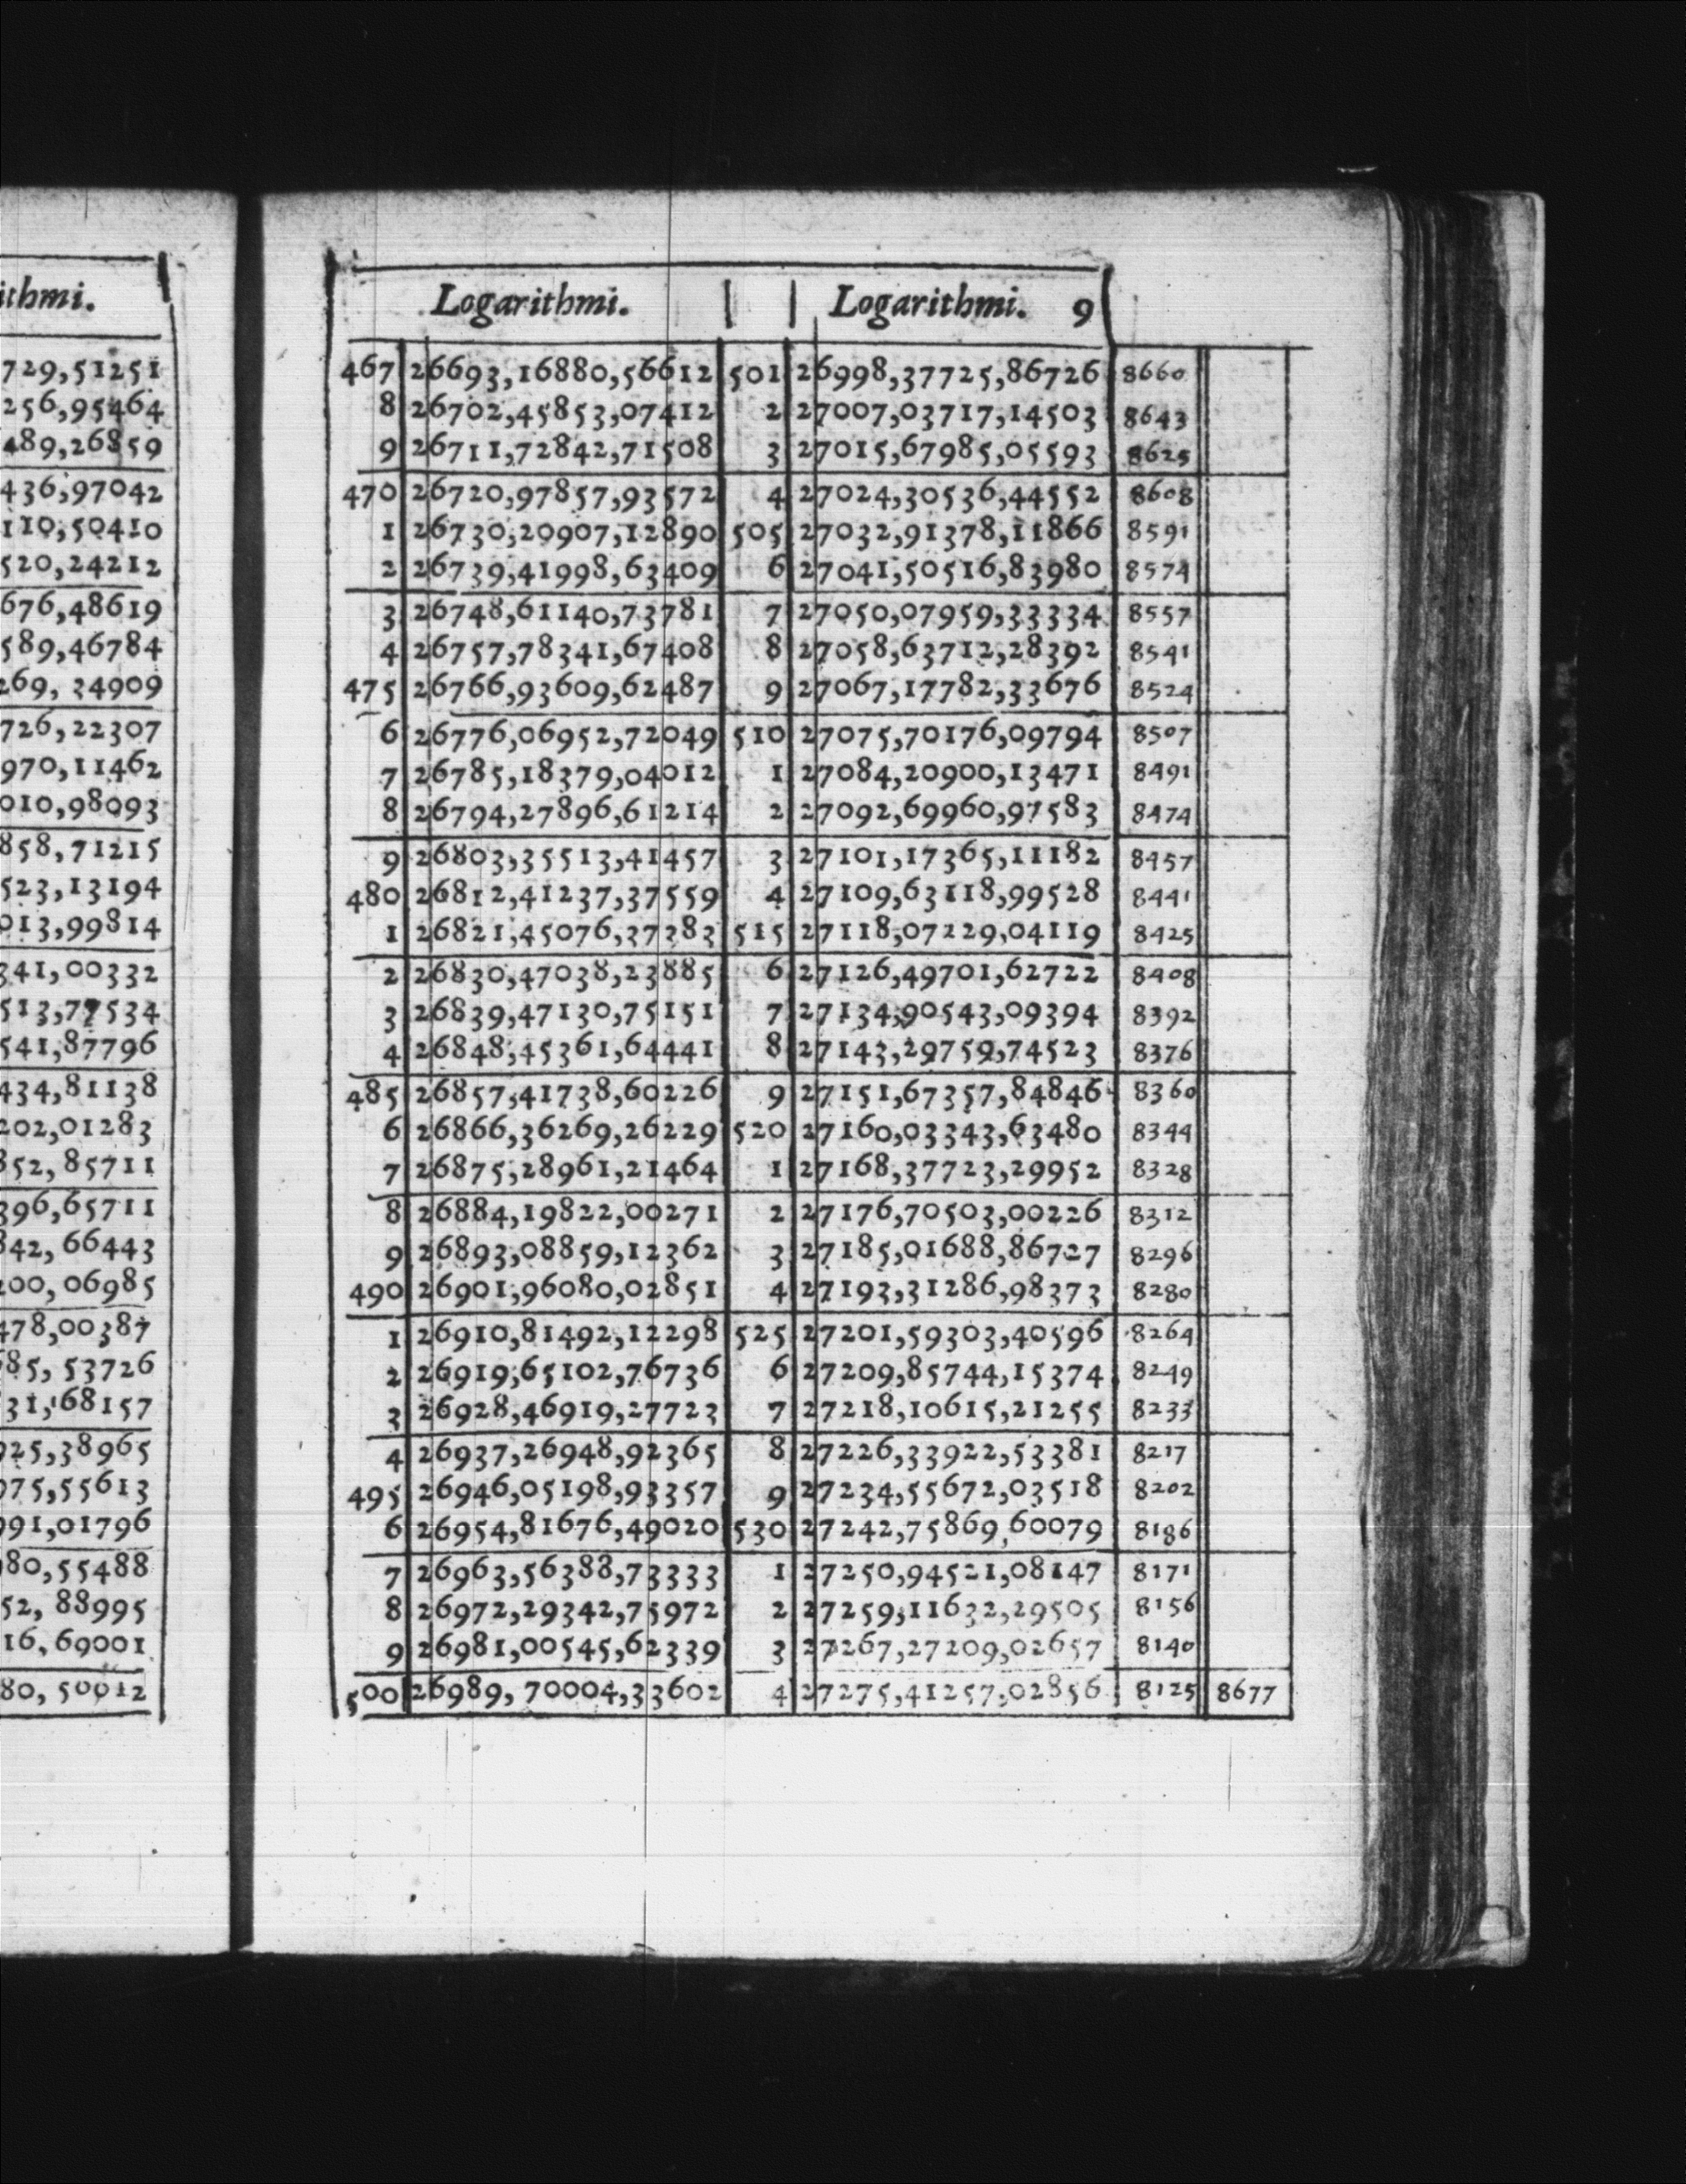 ithmi.
729,51251
256,95464
489,26859
436,97042
110,50410
520,24212
676,48619
589,46784
269, 34909
726,22307
970,11462
010,98093
858,71215
523,13194
013,99814
341,00332
513,77534
541,87796
434,81138
202,01283
852, 85711
396,65711
842, 66443
200, 06985
478,00387
685, 53726
31,68157
925,38965
975,55613
991,01796
980,55488
52, 88995
16,69001
80, 50012
Logarithmi. Logarithmi. 9
467 26693,16880,56612 501 26998,37725,86726 8660
8 26702,45853,07412 2 27007,03717,14503 8643
9 26711,72842,71508 3 27015,67985,05593 8625
470 26720,97857,93572 4 27024,30536,44552 8608
1 26730,20907,12890 505 27032,91378,11866 8591
2 26739,41998,63409 6 27041,50516,83980 8574
3 26748,61140,73781 7 27050,07959,33334 8557
4 26757,78341,67408 8 27058,63712,28392 8541
475 26766,93609,62487 9 27067,17782,33676 8524
6 26776,06952,72049 510 27075,70176,09794 8507
7 26785,18379,04012 1 27084,20900,13471 8491
8 26794,27896,61214 2 27092,69960,97583 8474
9 26803,35513,41457 3 27101,17365,11182 8457
480 26812,41237,37559 4 27109,63118,99528 8441
1 26821,45076,37383 515 27118,07229,04119 8425
2 26830,47038,23885 6 27126,49701,62722 8408
3 26839,47130,75151 7 27134,90543,09394 8392
4 26848,45361,64441 8 27143,29759,74523 8376
485 26857,41738,60226 9 27151,67357,84846 8360
6 26866,36269,26229 520 27160,03343,63480 8344
7 26875,28961,21464 1 27168,37723,29952 8328
8 26884,19822,00271 2 27176,70503,00226 8312
9 26893,08859,12362 3 27185,01688,86727 8296
490 26901,96080,02851 4 27193,31286,98373 8280
1 26910,81492,12298 525 27201,59303,40596 8264
2 26919,65102,76736 6 27209,85744,15374 8249
3 26928,46919,27723 7 27218,10615,21255 8233
4 26937,26948,92365 8 27226,33922,53381 8217
495 26946,05198,93357 9 27234,55672,03518 8202
6 26954,81676,49020 530 27242,75869,60079 8186
7 26963,56388,73333 1 27250,94521,08147 8171
8 26972,29342,75972 2 27259,11632,29505 8156
9 26981,00545,62339 3 27267,27209,02657 8140
500 26989, 70004,33602 4 27275,41257,02856 8125 8677